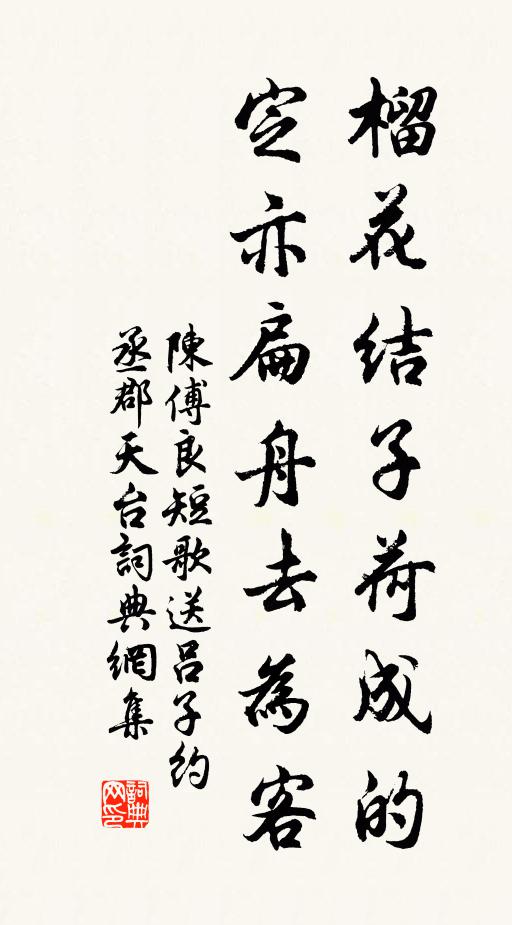 榴花結子荷成的
定亦扁舟去為客
陳傅良短歌送呂子約
丞郡天台詞典網集
詞典网印